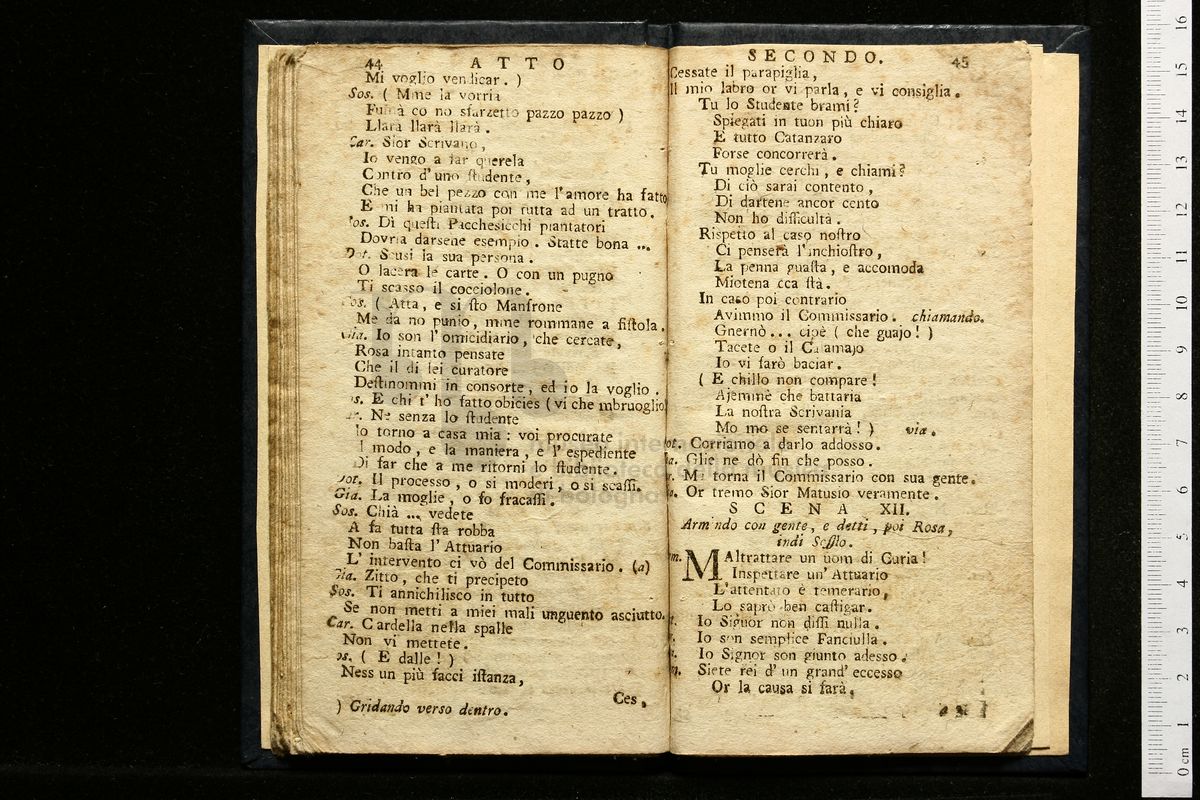 44 ATTO
Mi voglio vendicar. )
Sos. ( Mme la vorria
Fumà co no sfarzetto pazzo pazzo )
Llarà llarà llarà.
Car. Sior Scrivano,
Io vengo a far querela
Contro d'uno ſtudente,
Che un bel pezzo con me l'amore ha fatto
E mi ha piantata poi tutta ad un tratto.
Sos. Di queſti Pacchesicchi piantatori
Dovria darsene esempio. Statte bona ...
Dot. Scusi la sua persona.
O lacera le carte. O con un pugno
Ti scasso il cocciolone.
Sos. ( Atta, e si ſto Manfrone
Me da no punio, mme rommane a fiſtola.
Gia. Io son l'omicidiario, che cercate,
Rosa intanto pensate
Che il di lei curatore
Deſtinommi in consorte, ed io la voglio.
os. E chi t'ho fatto obicies ( vi che mbruoglio
ar. Ne senza lo ſtudente
Io torno a casa mia: voi procurate
l modo, e la maniera, e l'espediente
Di far che a me ritorni lo ſtudente.
Dot. Il processo, o si moderi, o si scaſſi.
Gia. La moglie, o fo fracaſſi.
Sos. Chià ... vedete
A fa tutta ſta robba
Non baſta l'Attuario
L'intervento ci vò del Commissario. (a)
Gia. Zitto, che ti precipeto
Sos. Ti annichilisco in tutto
Se non metti a miei mali unguento asciutto.
Car. Cardella nella spalle
Non vi mettete.
os. ( E dalle! )
Nessun più facci iſtanza,
Ces.
) Gridando verso dentro.
SECONDO. 45
Cessate il parapiglia,
Il mio labro or vi parla, e vi consiglia.
Tu lo Studente brami?
Spiegati in tuon più chiaro
E tutto Catanzaro
Forse concorrerà.
Tu moglie cerchi, e chiami?
Di ciò sarai contento,
Di dartene ancor cento
Non ho difficultà.
Rispetto al caso noſtro
Ci penserà l'inchioſtro,
La penna guaſta, e accomoda
Miotena cca ſtà.
In caso poi contrario
Avimmo il Commissario. chiamando.
Gnernò... cioè ( che guajo! )
Tacete o il Calamajo
Io vi farò baciar.
( E chillo non compare!
Ajemmè che battaria
La noſtra Scrivania
Mo mo se sentarrà! ) via.
ot. Corriamo a darlo addosso.
a. Glie ne dò fin che posso.
r. Mi torna il Commissario con sua gente.
a. Or tremo Sior Matusio veramente.
SCENA XII.
Armindo con gente, e detti, poi Rosa,
indi Seſſio.
m. MAltrattare un uom di Curia!
Inspettare un'Attuario
L'attentato è temerario,
Lo saprò ben caſtigar.
t. Io Signor non diſſi nulla.
r. Io son semplice Fanciulla.
a. Io Signor son giunto adesso.
m. Siete rei d'un grand'eccesso
Or la causa si farà.